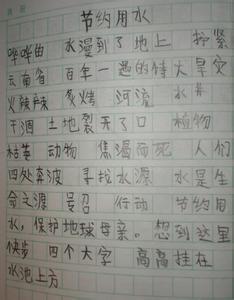 节约用水
哗哗的 水漫到了地上 拧紧
云南省 百年一遇的特大旱灾
火辣辣 炙烤 河流 水井
干涸 土地裂开了口 植物
枯萎 动物 焦渴而死 人们
四处奔波 寻找水源 水是生
命之源 号召 行动 节约用
水，保护地球母亲。想到这里
快步 四个大字 高高挂在
水池上方